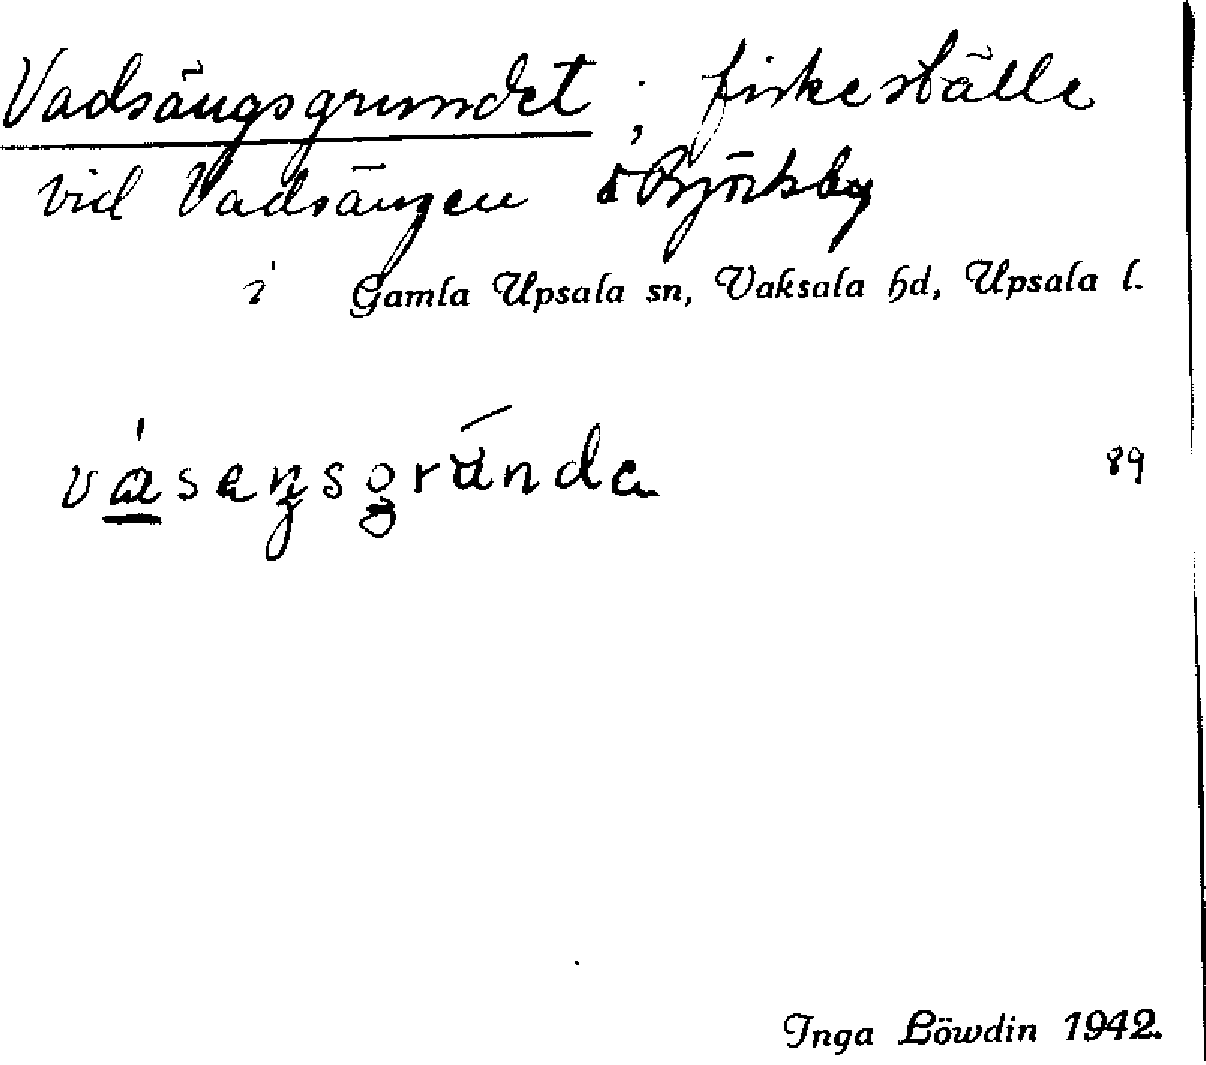 Vadsängsgrundet; fiskeställe
vid Vadsängen å Björkby
i Gamla Upsala sn, Vaksala hd, Upsala l.
89
Inga Löwdin 1942.